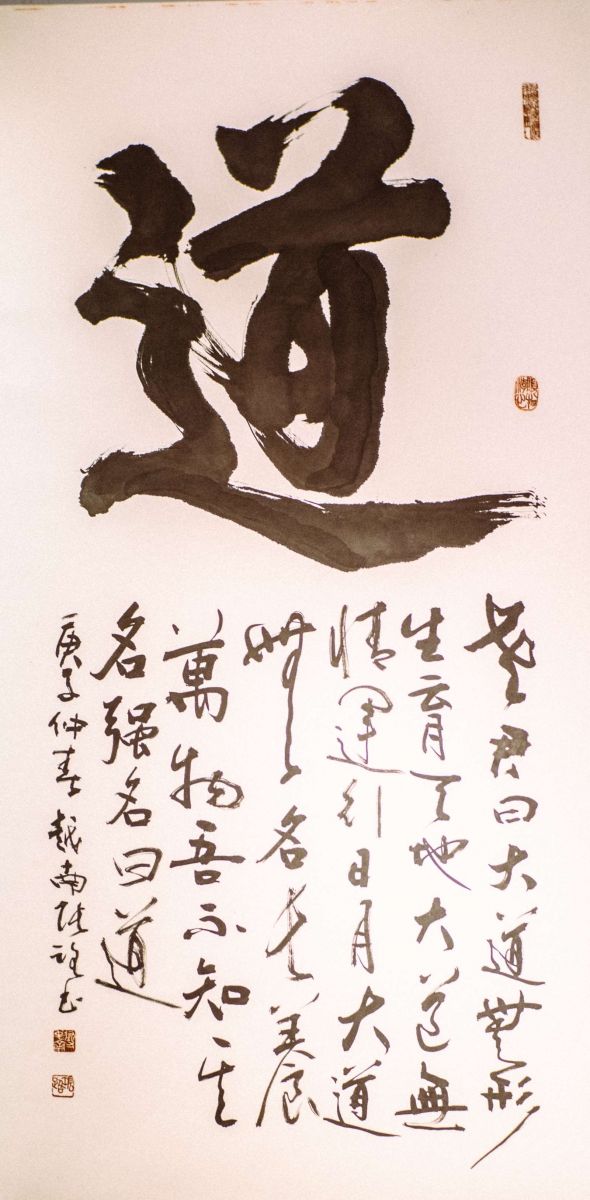 道
老君曰大道無形
生育天地大道無
情運行日月大道
無名長養
萬物吾不知其
名强名曰道
庚子仲春越南书